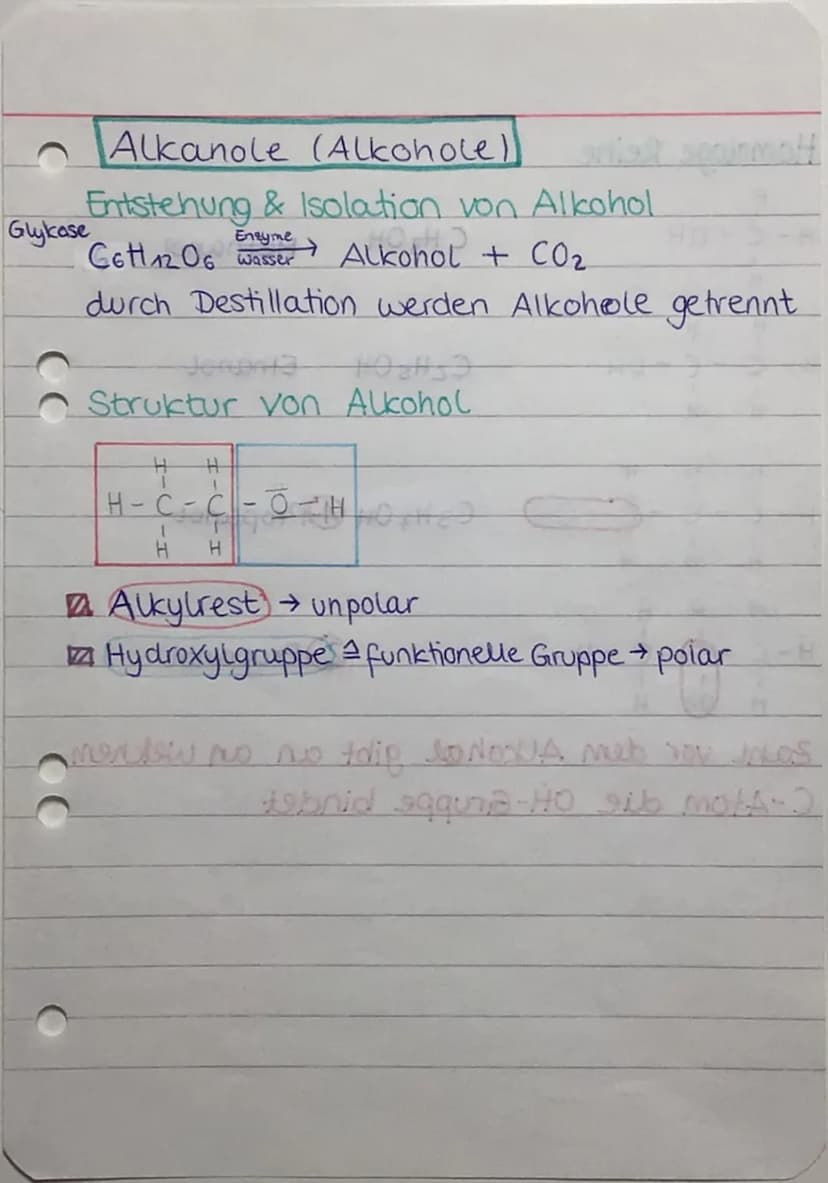 Alkanole (Alkohole)
Entstehung & Isolation von Alkohol
Glykose
C6H12O6 Enzyme Wasser → Alkohol + CO2
durch Destillation werden Alkohole getrennt
Struktur von Alkohol
H H
H - C - C - O - H
H H
Alkylrest → unpolar
Hydroxylgruppe ≙ funktionelle Gruppe → polar